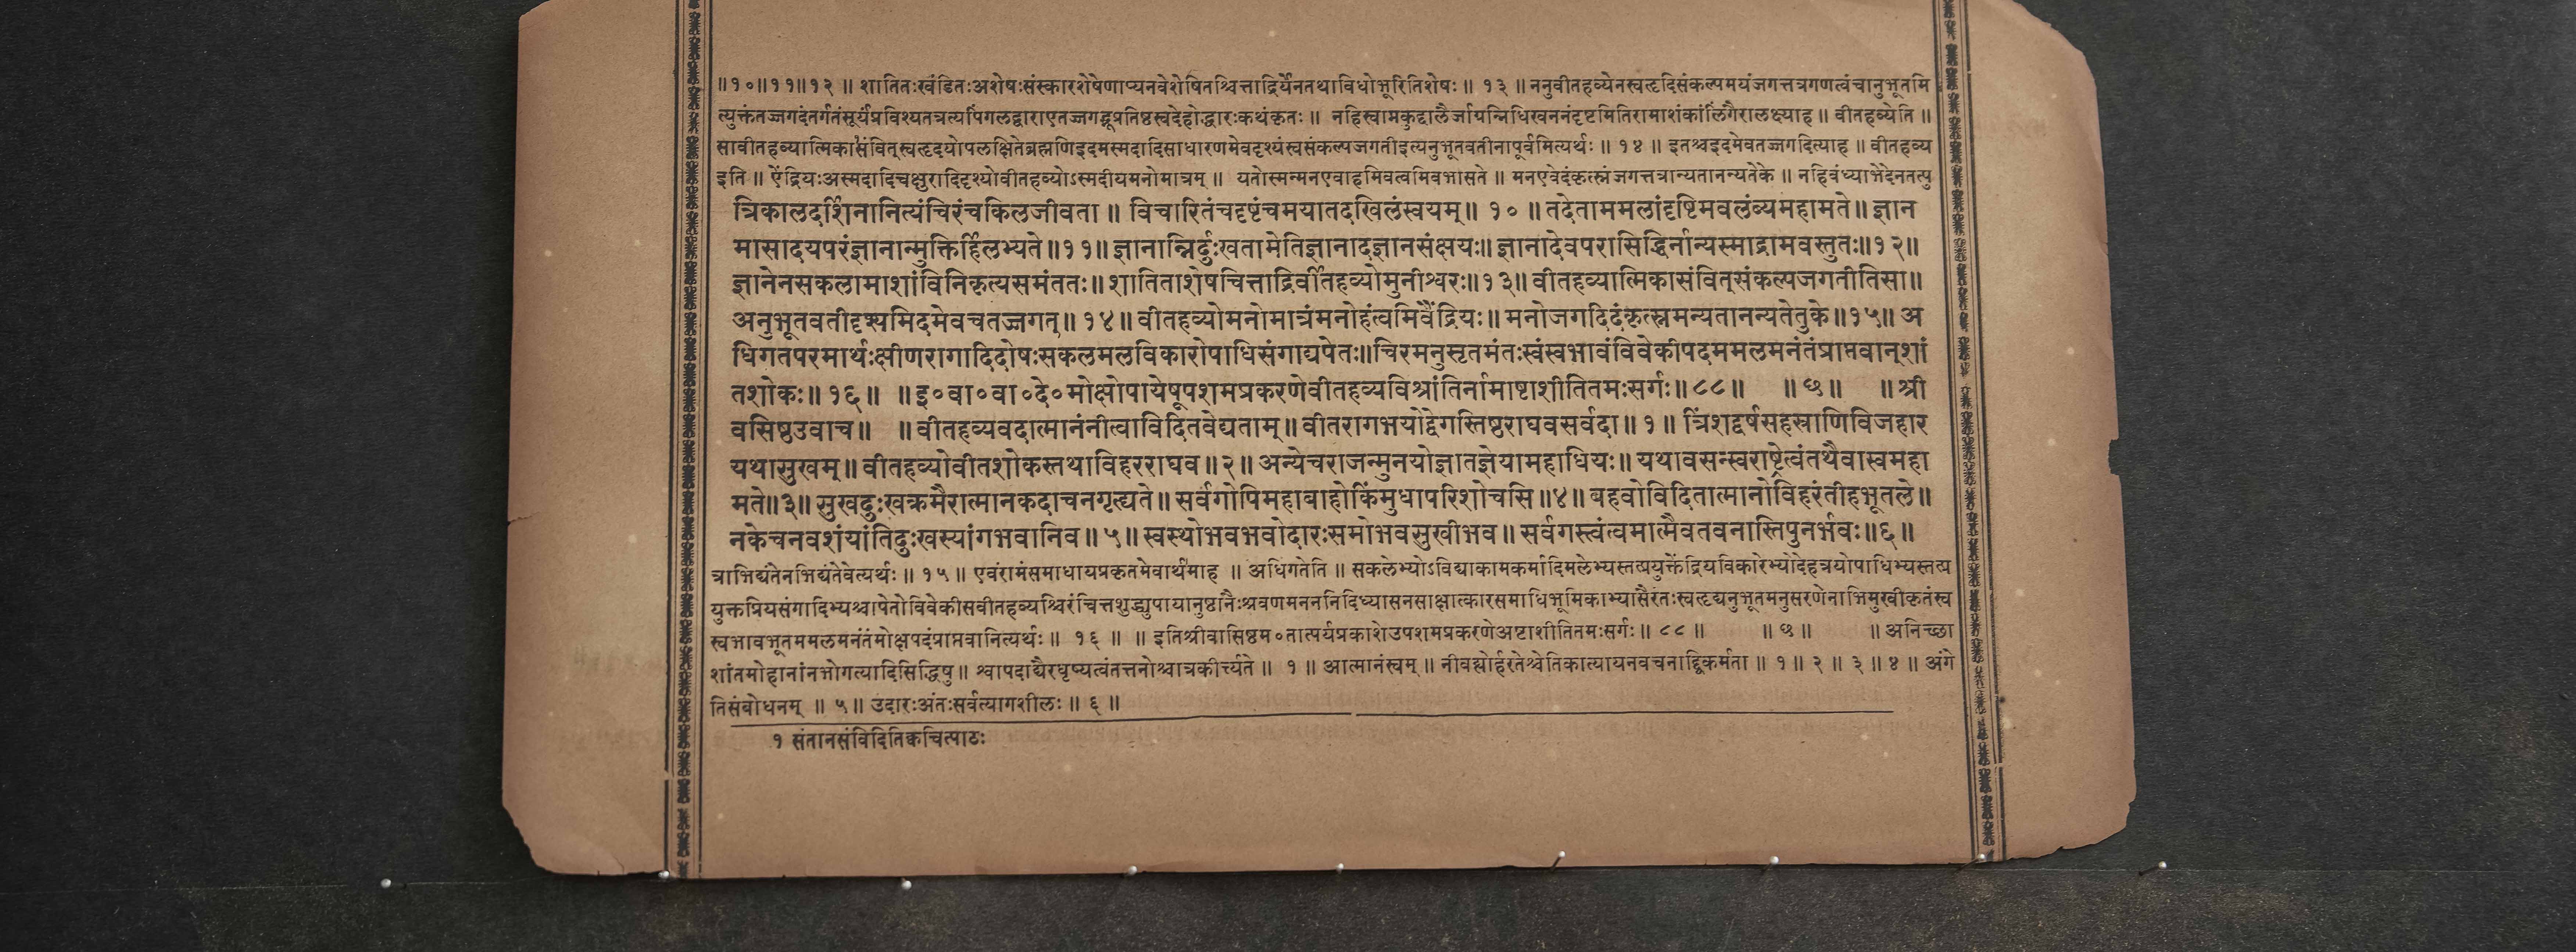 ॥१०॥११॥१२ ॥ शातितःखंडितःअशेषःसंस्कारशेषेणाप्यनवेशेषितश्चित्ताद्रिर्येनतथाविधोभूरितिशेषः ॥ १३ ॥ ननुवीतहव्येनस्वहृदिसंकल्पमयंजगत्तत्रगणत्वंचानुभूतमि
त्युक्तंतज्जगदंतर्गतंसूर्यंप्रविश्यतत्रत्यपिंगलद्वाराएतज्जगद्भूप्रतिष्ठस्वदेहोद्धारःकथंकृतः ॥ नहिस्वाप्नकुद्दालैर्जाग्रन्निधिखननंदृष्टमितिरामाशंकांलिंगैरालक्ष्याह ॥ वीतहव्येति ॥
सावीतहव्यात्मिकासंवित्स्वहृदयोपलक्षितेब्रह्मणिइदमस्मदादिसाधारणमेवदृश्यंस्वसंकल्पजगतीइत्यनुभूतवतीनापूर्वमित्यर्थः ॥ १४ ॥ इतश्चइदमेवतज्जगदित्याह ॥ वीतहव्य
इति ॥ ऐंद्रियःअस्मदादिचक्षुरादिदृश्योवीतहव्योऽस्मदीयमनोमात्रम् ॥ यतोस्मन्मनएवाहमिवत्वमिवभासते ॥ मनएवेदंकृत्स्नंजगत्तत्रान्यतानन्यतेके ॥ नहिवंध्याभेदेनतत्पु
त्रिकालदर्शिनानित्यंचिरंचकिलजीवता ॥ विचारितंचदृष्टंचमयातदखिलंस्वयम् ॥ १० ॥ तदेताममलांदृष्टिमवलंब्यमहामते ॥ ज्ञान
मासादयपरंज्ञानान्मुक्तिर्हिलभ्यते ॥ ११ ॥ ज्ञानान्निर्दुःखतामेतिज्ञानादज्ञानसंक्षयः ॥ ज्ञानादेवपरासिद्धिर्नान्यस्माद्रामवस्तुतः ॥ १२ ॥
ज्ञानेनसकलामाशांविनिकृत्यसमंततः ॥ शातिताशेषचित्ताद्रिर्वीतहव्योमुनीश्वरः ॥ १३ ॥ वीतहव्यात्मिकासंवित्संकल्पजगतीतिसा ॥
अनुभूतवतीदृश्यमिदमेवचतज्जगत् ॥ १४ ॥ वीतहव्योमनोमात्रंमनोहंत्वमिवैंद्रियः ॥ मनोजगदिदंकृत्स्नमन्यतानन्यतेतुके ॥ १५ ॥ अ
धिगतपरमार्थःक्षीणरागादिदोषःसकलमलविकारोपाधिसंगाद्यपेतः ॥ चिरमनुसृतमंतःस्वंस्वभावंविवेकीपदममलमनंतंप्राप्तवान्शां
तशोकः ॥ १६ ॥ ॥ इ०वा०वा०दे०मोक्षोपायेषूपशमप्रकरणेवीतहव्यविश्रांतिर्नामाष्टाशीतितमःसर्गः ॥ ८८ ॥ ॥ ७ ॥ ॥ श्री
वसिष्ठउवाच ॥ ॥ वीतहव्यवदात्मानंनीत्वाविदितवेद्यताम् ॥ वीतरागभयोद्वेगस्तिष्ठराघवसर्वदा ॥ १ ॥ त्रिंशद्वर्षसहस्राणिविजहार
यथासुखम् ॥ वीतहव्योवीतशोकस्तथाविहरराघव ॥ २ ॥ अन्येचराजन्मुनयोज्ञातज्ञेयामहाधियः ॥ यथावसन्स्वराष्ट्रेत्वंतथैवास्वमहा
मते ॥ ३ ॥ सुखदुःखक्रमैरात्मानकदाचनगृह्यते ॥ सर्वगोपिमहाबाहोकिंमुधापरिशोचसि ॥ ४ ॥ बहवोविदितात्मानोविहरंतीहभूतले ॥
नकेचनवशंयांतिदुःखस्यांगभवानिव ॥ ५ ॥ स्वस्थोभवभवोदारःसमोभवसुखीभव ॥ सर्वगस्त्वंत्वमात्मैवतवनास्तिपुनर्भवः ॥ ६ ॥
त्राभिद्यंतेनभिद्यंतेवेत्यर्थः ॥ १५ ॥ एवंरामंसमाधायप्रकृतमेवार्थमाह ॥ अधिगतेति ॥ सकलेभ्योऽविद्याकामकर्मादिमलेभ्यस्तत्प्रयुक्तेंद्रियविकारेभ्योदेहत्रयोपाधिभ्यस्तत्प्र
युक्तप्रियसंगादिभ्यश्चापेतोविवेकीसवीतहव्यश्चिरंचित्तशुद्ध्युपायानुष्ठानैःश्रवणमनननिदिध्यासनसाक्षात्कारसमाधिभूमिकाभ्यासैरंतःस्वहृद्यनुभूतमनुसरणेनाभिमुखीकृतंस्व
स्वभावभूतममलमनंतंमोक्षपदंप्राप्तवानित्यर्थः ॥ १६ ॥ ॥ इतिश्रीवासिष्ठम०तात्पर्यप्रकाशेउपशमप्रकरणेअष्टाशीतितमःसर्गः ॥ ८८ ॥ ॥ ७ ॥ ॥ अनिच्छा
शांतमोहानांनभोगत्यादिसिद्धिषु ॥ श्वापदाद्यैरधृष्यत्वंतत्तनोश्चात्रकीर्त्यते ॥ १ ॥ आत्मानंस्वम् ॥ नीवह्योर्हरतेश्चेतिकात्यायनवचनाद्द्विकर्मता ॥ १ ॥ २ ॥ ३ ॥ ४ ॥ अंगे
तिसंबोधनम् ॥ ५ ॥ उदारःअंतःसर्वत्यागशीलः ॥ ६ ॥
१ संतानसंविदितिक्वचित्पाठः